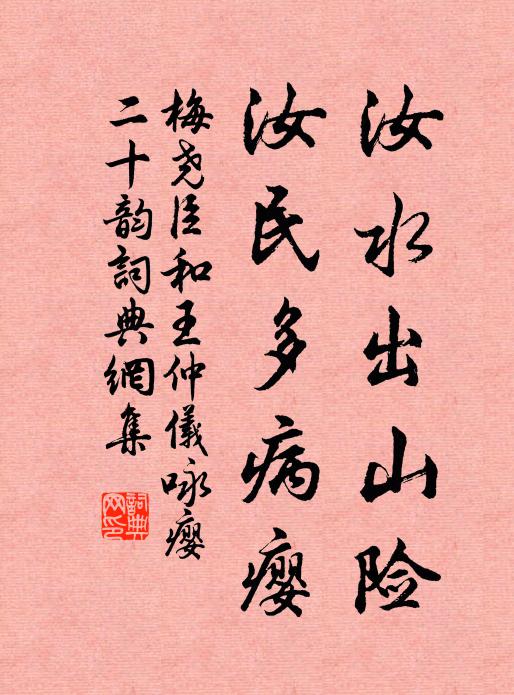 汝水出山险
汝民多病瘿
梅尧臣和王仲儀咏瘿
二十韵詞典網集
詞典网印